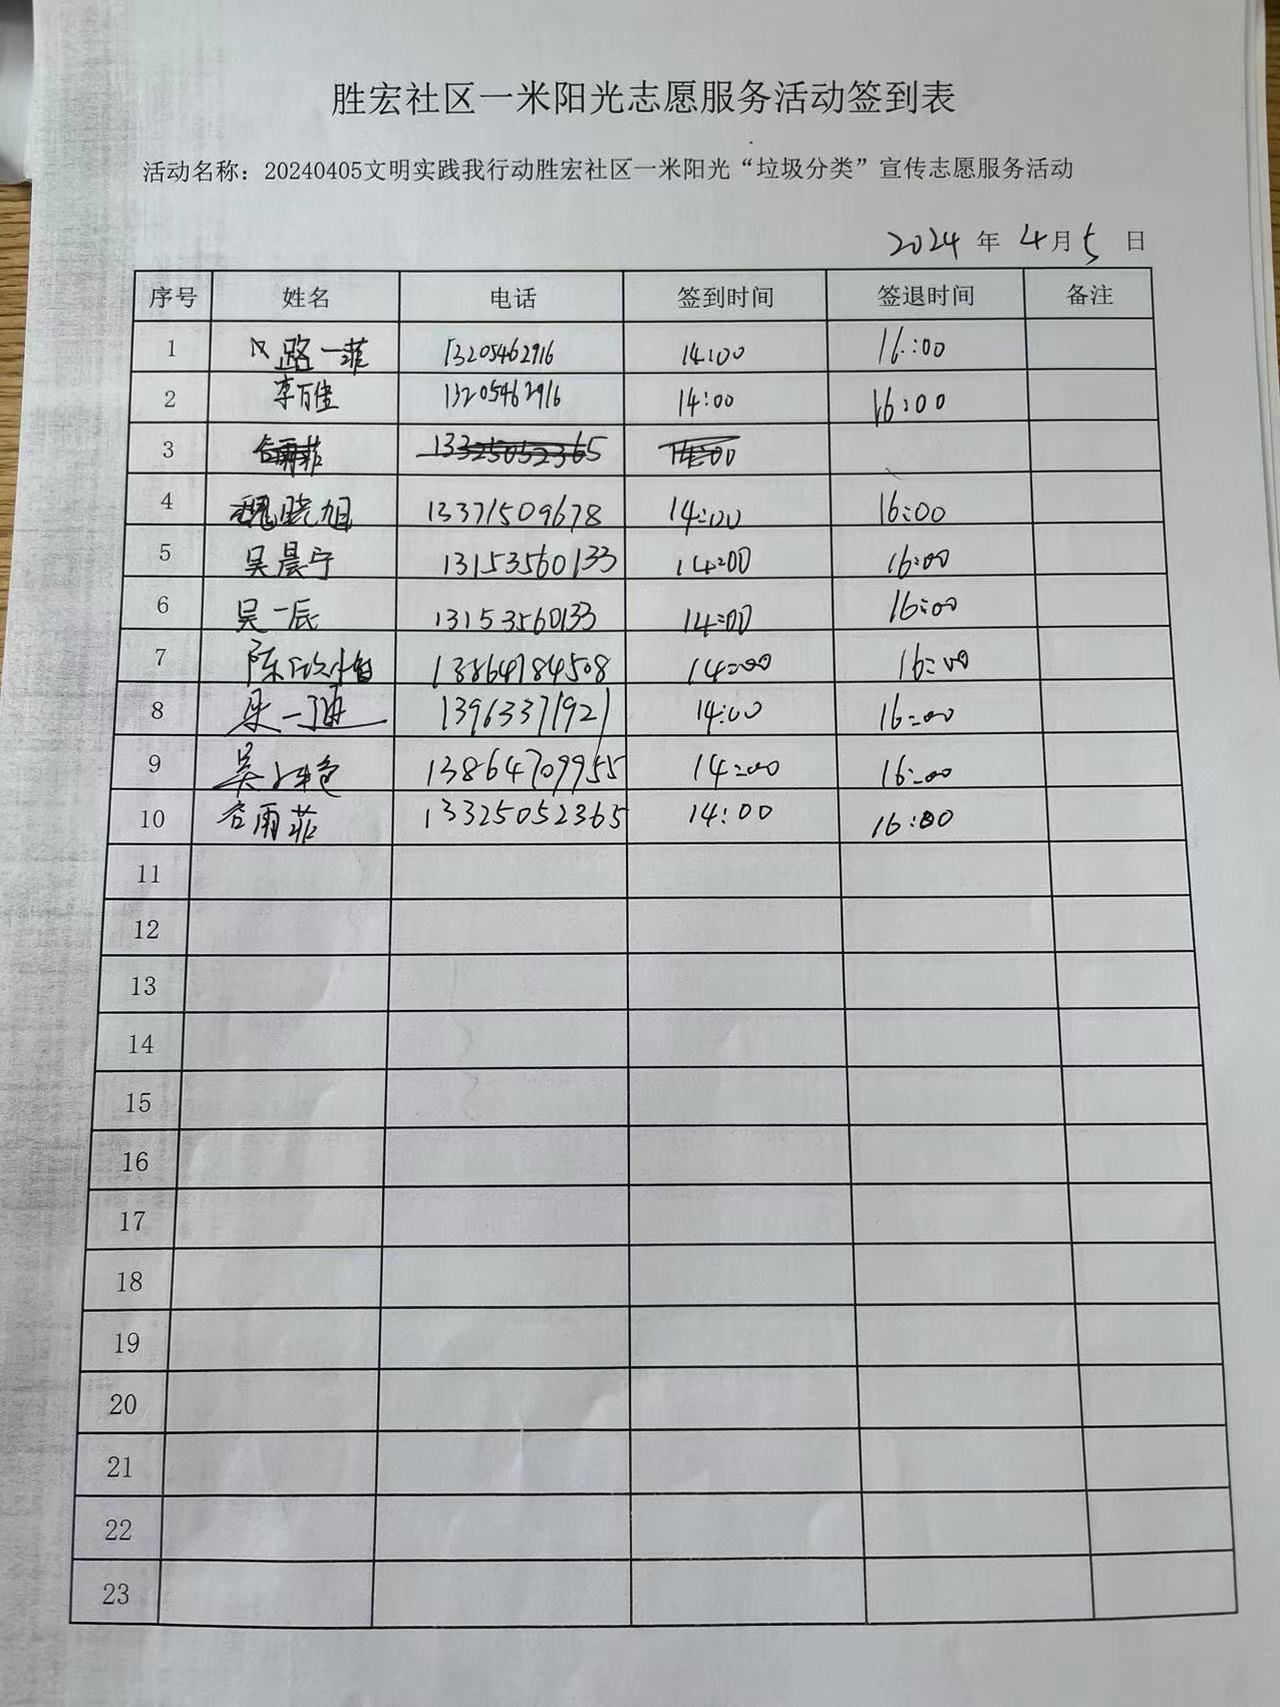 胜宏社区一米阳光志愿服务活动签到表
活动名称：20240405文明实践我行动胜宏社区一米阳光“垃圾分类”宣传志愿服务活动
2024 年 4月5 日
序号 姓名 电话 签到时间 签退时间 备注
1 路一菲 13205462916 14:00 16:00
2 李百佳 13205462916 14:00 16:00
3 谷雨菲 13325052365 14:00
4 魏晓旭 13371509678 14:00 16:00
5 吴晨宁 13153560133 14:00 16:00
6 吴一辰 13153560133 14:00 16:00
7 陈欣怡 13864784508 14:00 16:00
8 一 13963371921 14:00 16:00
9 吴 13864709955 14:00 16:00
10 谷雨菲 13325052365 14:00 16:00
11
12
13
14
15
16
17
18
19
20
21
22
23